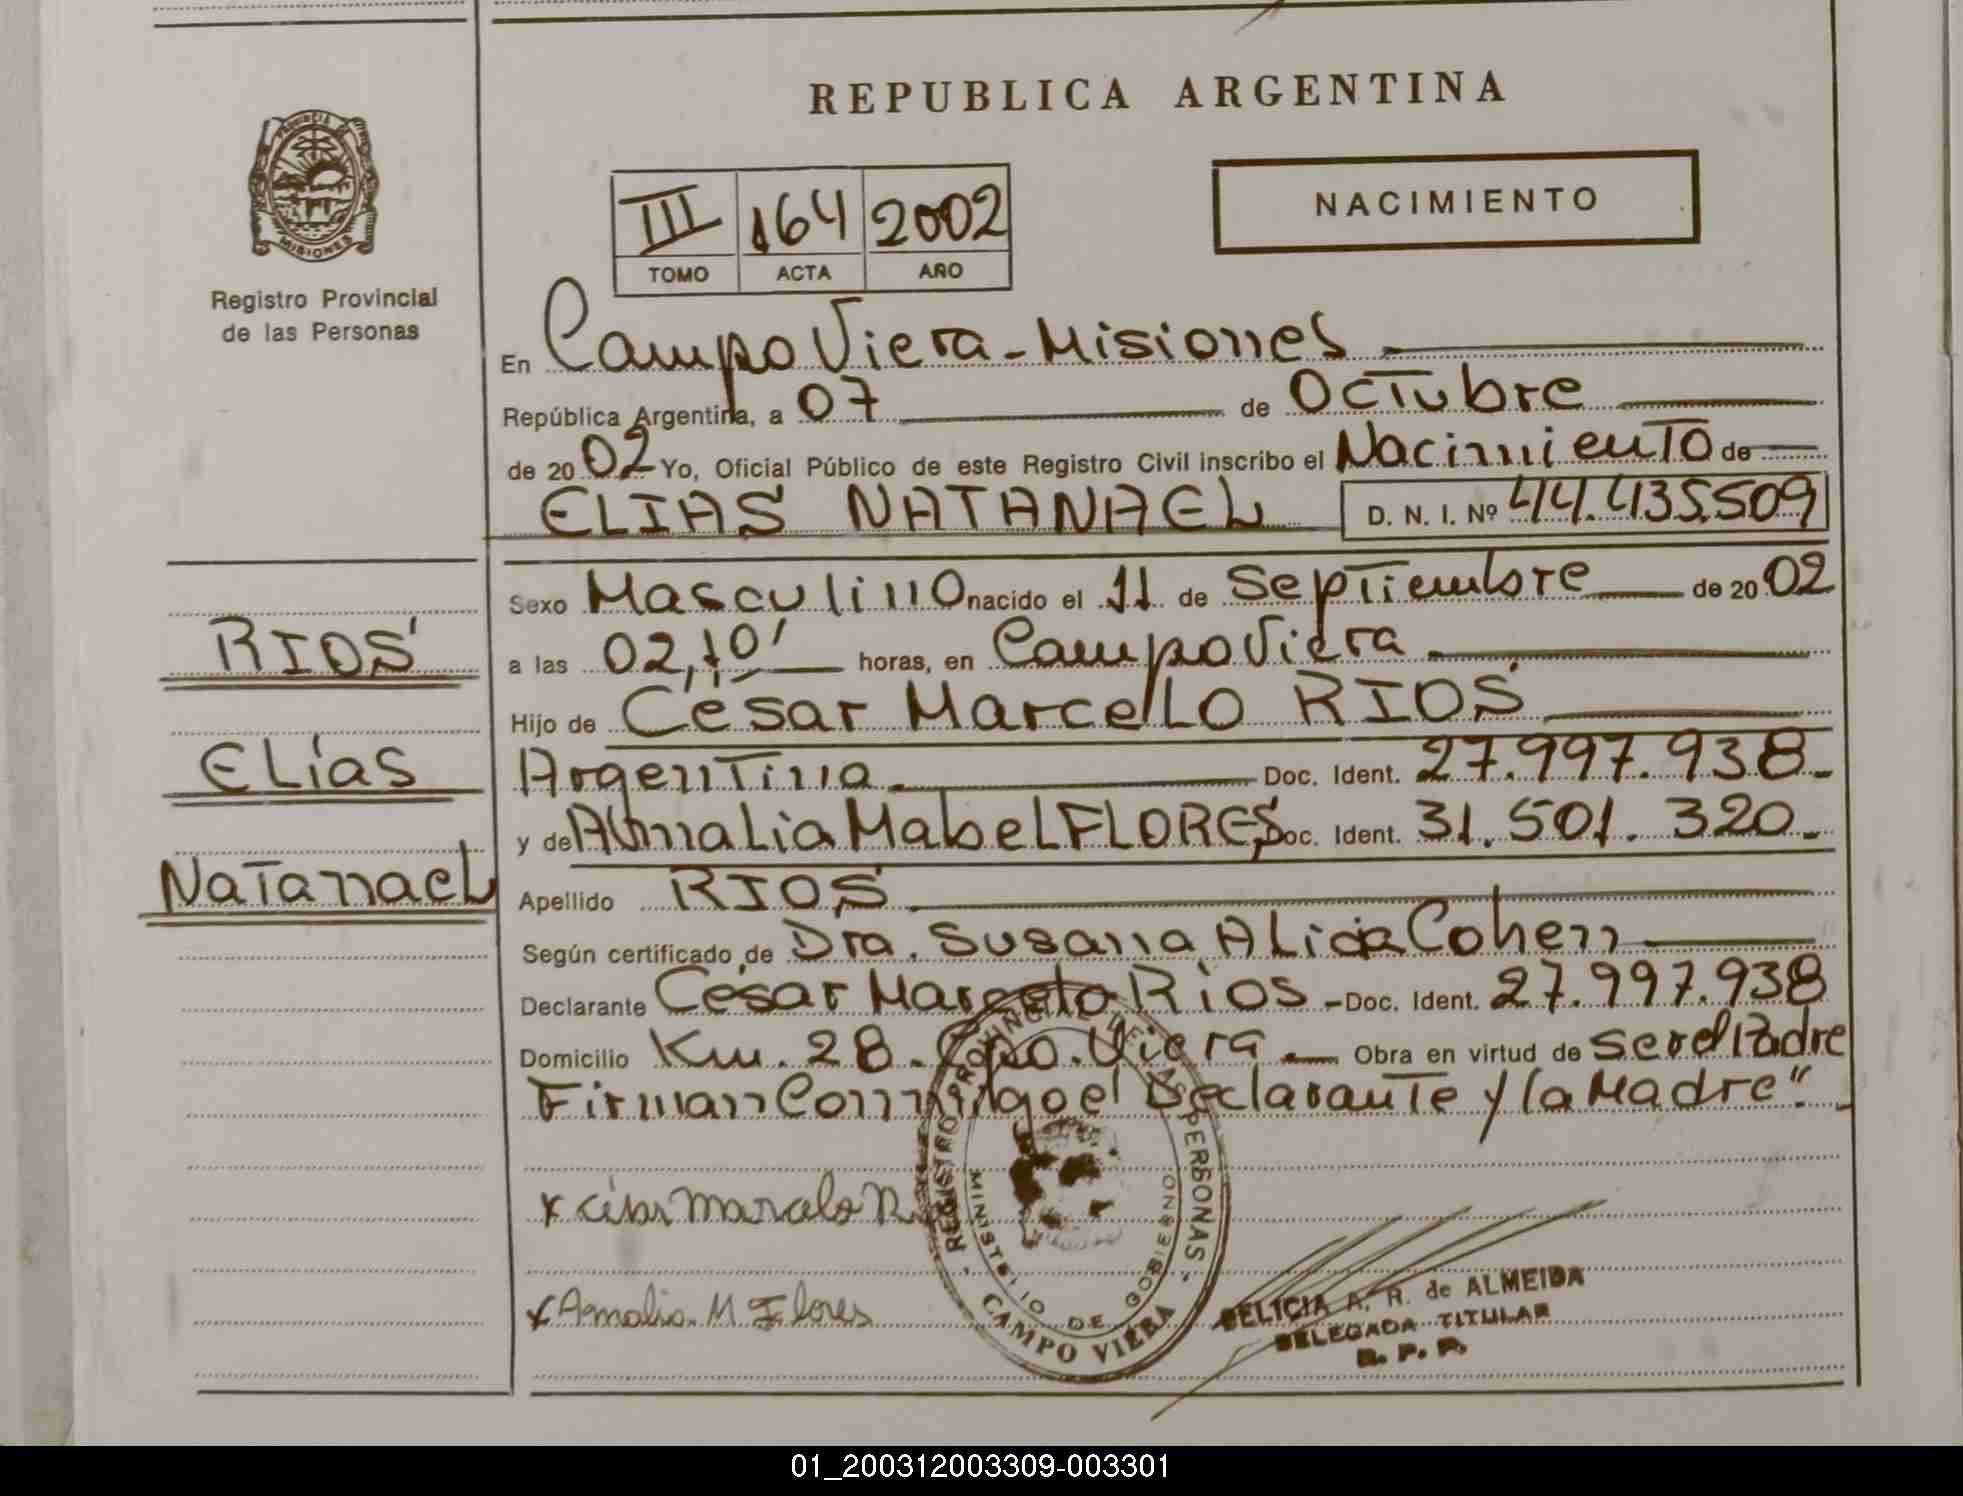 REPUBLICA ARGENTINA
PROVINCIA DE
MISIONES
Registro Provincial
de las Personas
III 164 2002
TOMO ACTA AÑO
NACIMIENTO
En Campo Viera - Misiones
República Argentina, a 07 de Octubre
de 2002 Yo, Oficial Público de este Registro Civil inscribo el Nacimiento de
ELIAS NATANAEL D. N. I. Nº 44.435.509
Sexo Masculino nacido el 11 de Septiembre de 2002
a las 02,10' horas, en Campo Viera
Hijo de César Marcelo RIOS
Argentina Doc. Ident. 27.997.938-
y de Amalia Mabel FLORES Doc. Ident. 31.501.320-
Apellido RIOS
Según certificado de Dra. Susana Alicia Cohen
Declarante César Marcelo Rios - Doc. Ident. 27.997.938
Domicilio Km. 28. Cpo. Viera. Obra en virtud de ser el Padre
Firman Conmigo el Declarante y la Madre".-
RIOS
Elías
Natanael
x César Marcelo R
x Amalia. M Flores
REGISTRO PROVINCIAL DE LAS PERSONAS
MINISTERIO DE GOBIERNO
CAMPO VIERA
DELICIA A. R. de ALMEIDA
DELEGADA TITULAR
R. P. P.
01_200312003309-003301